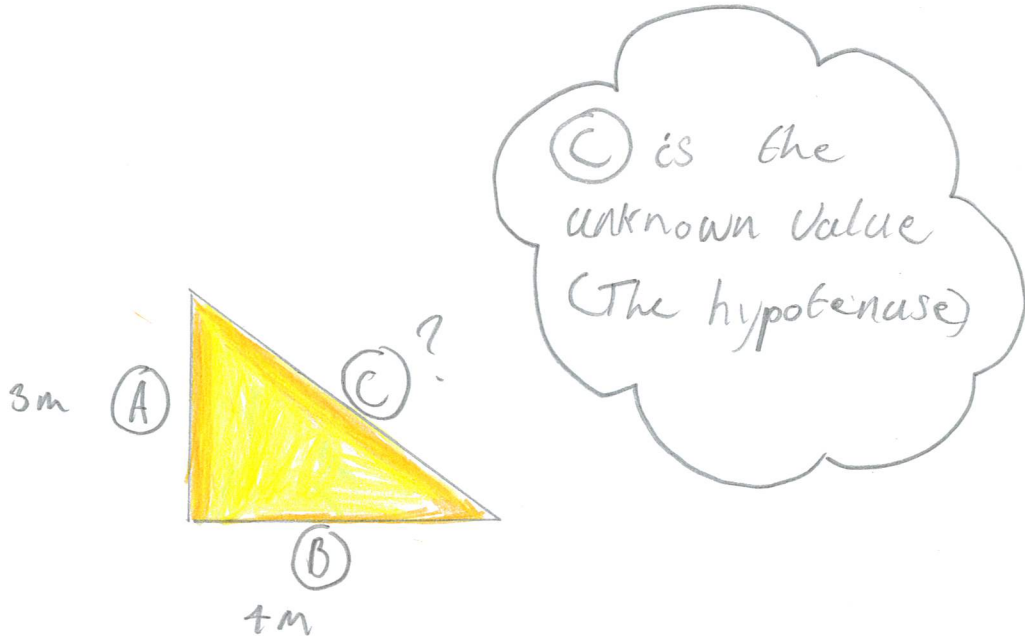 C is the
unknown value
(The hypotenuse)
?
C
3m
A
B
4m